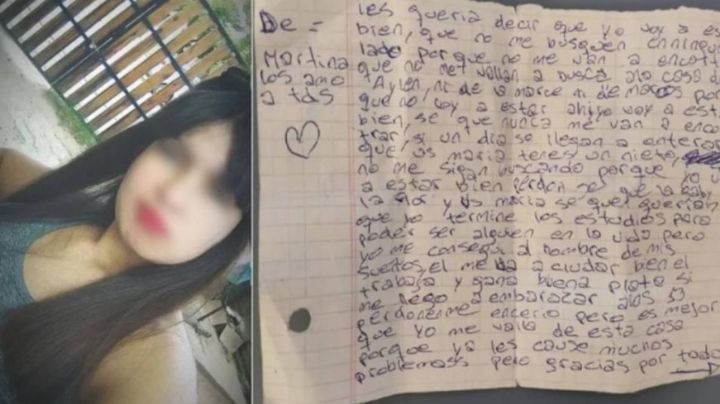 De =
Martina
los amo
a tds
les queria decir que yo voy a es
bien, que no me busquen en ningu
lado porque no me van a encont
que no me vallan a busca ala casa d
Aylen, ni de la marce ni de marcos por
que no voy a estar ahi yo voy a est
bien, se que nunca me van a enco
trar, si un dia se llegan a enterar
que us maria teres un nieto,
no me sigan buscando porque yo v
a estar bien perdon se que la gaby
la flor y us maria se que querian
que yo termine los estudios para
poder ser alguien en la vida pero
yo me consegui al hombre de mis
sueños, el me va a ciudar bien el
trabaja y gana buena plata si
me llego a embarazar a los 13
perdonenme encerio pero es mejor
que yo me valla de esta casa
porque ya les cause muchos
problemass pero gracias por todo